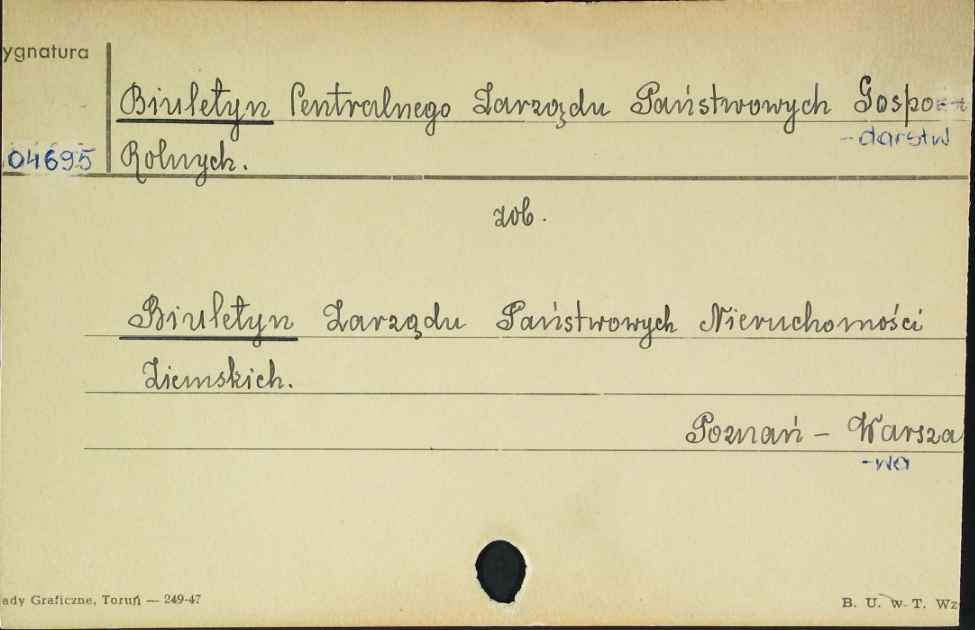 ygnatura
Biuletyn Centralnego Zarządu Państwowych Gospo-
-darstw
04695 Rolnych.
zob.
Biuletyn Zarządu Państwowych Nieruchomości
Ziemskich.
Poznań – Warsza
-wa
ady Graficzne, Toruń — 249-47
B. U. w T. Wz